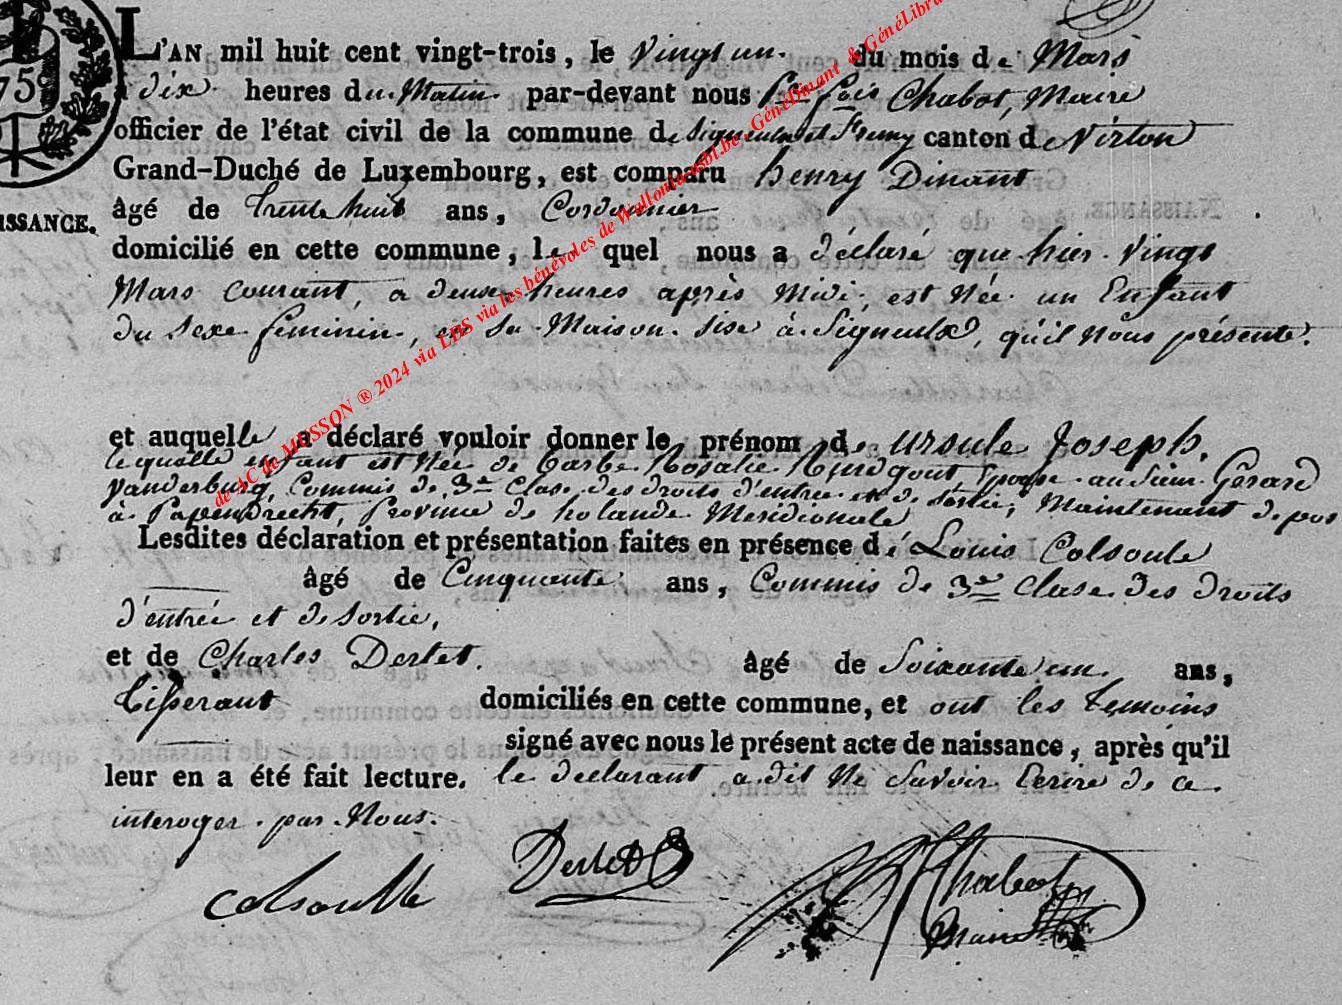 L'AN mil huit cent vingt-trois, le Vingt un du mois de Mars
à dix heures du Matin par-devant nous Chabot, Maire
officier de l'état civil de la commune de Signeulx et canton de Virton
Grand-Duché de Luxembourg, est comparu henry Dinant
âgé de trente huit ans, Cordonnier
ISSANCE.
domicilié en cette commune, le quel nous a déclaré que hier Vingt
Mars Courant, a deux heures après Midi est Née un Enfant
du Sexe feminin, en sa Maison sise à Signeulx, qu'il Nous présente.
et auquelle a déclaré vouloir donner le prénom de ursule Joseph.
lequelle enfant est Née de barbe Rosalie Epouse au Sieur Gerard
Vanderburg, Commis de 3me Clase des droits d'entrée et de Sortie, Maintenant de
à Papendrecht, Province de holande Meridionale
Lesdites déclaration et présentation faites en présence dé Louis Colsoule
âgé de Cinquante ans, Commis de 3me Clase des droits
d'entrée et de sortie,
et de Charles Dertet. âgé de Soixante un ans,
tisserant domiciliés en cette commune, et ont les temoins
signé avec nous le présent acte de naissance, après qu'il
leur en a été fait lecture. le declarant a dit Ne Savoir Ecrire de ce
interoger par Nous.
Colsoulle Dertet Chabot
Maire
de AC de MUSSON ® 2024 via LDS via les bénévoles de Wallonia asbl.be - GénéDinant & GénéLibra